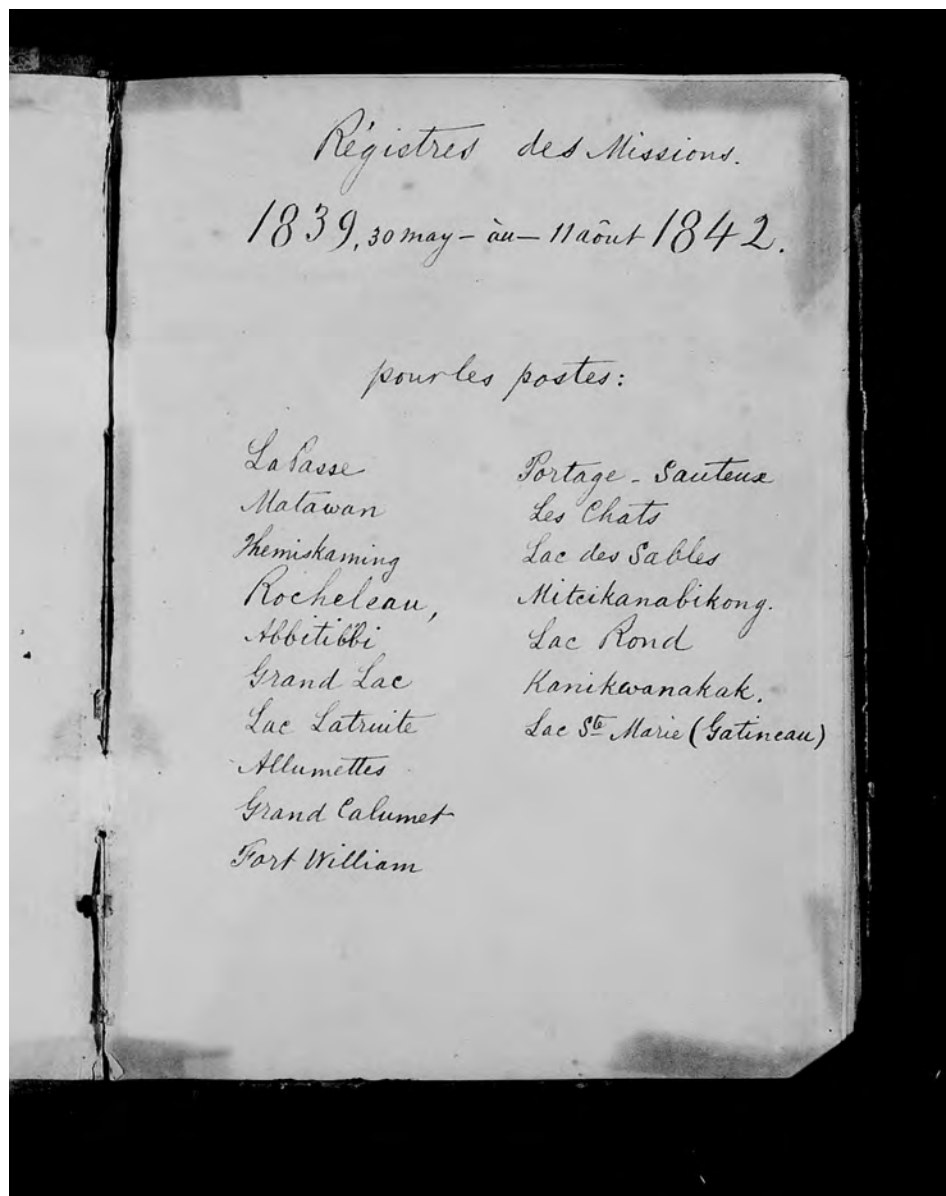 Régistres des Missions.
1839, 30 may – àu – 11 aôut 1842.
pour les postes:
LaPasse
Matawan
Themiskaming
Rocheleau,
Abbitibbi
Grand Lac
Lac Latruite
Allumettes
Grand Calumet
Fort William
Portage - Sauteux
Les Chats
Lac des Sables
Mitcikanabikong.
Lac Rond
Kanikwanakak.
Lac Ste Marie (Gatineau)